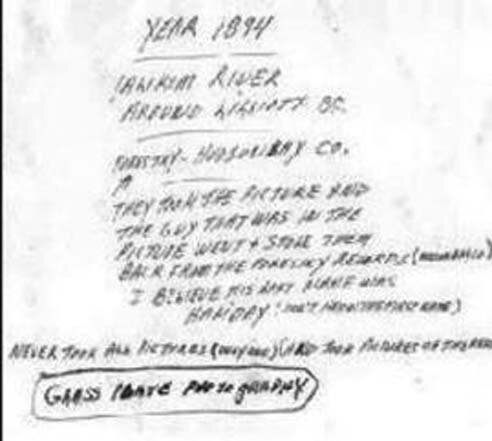 YEAR 1894
YALIKIM RIVER
AROUND LILLIOTT BC.
FORESTRY - HUDSON BAY CO.
THEY TOOK THE PICTURE AND
THE GUY THAT WAS IN THE
PICTURE WENT & STOLE THEM
BACK FROM THE FORESTRY RECORDS
I BELIEVE HIS LAST NAME WAS
HOLIDAY (DON'T KNOW THE FIRST NAME)
NEVER TOOK ALL PICTURES (ONLY ONE) AND TOOK PICTURES OF
GLASS PLATE PHOTOGRAPHY